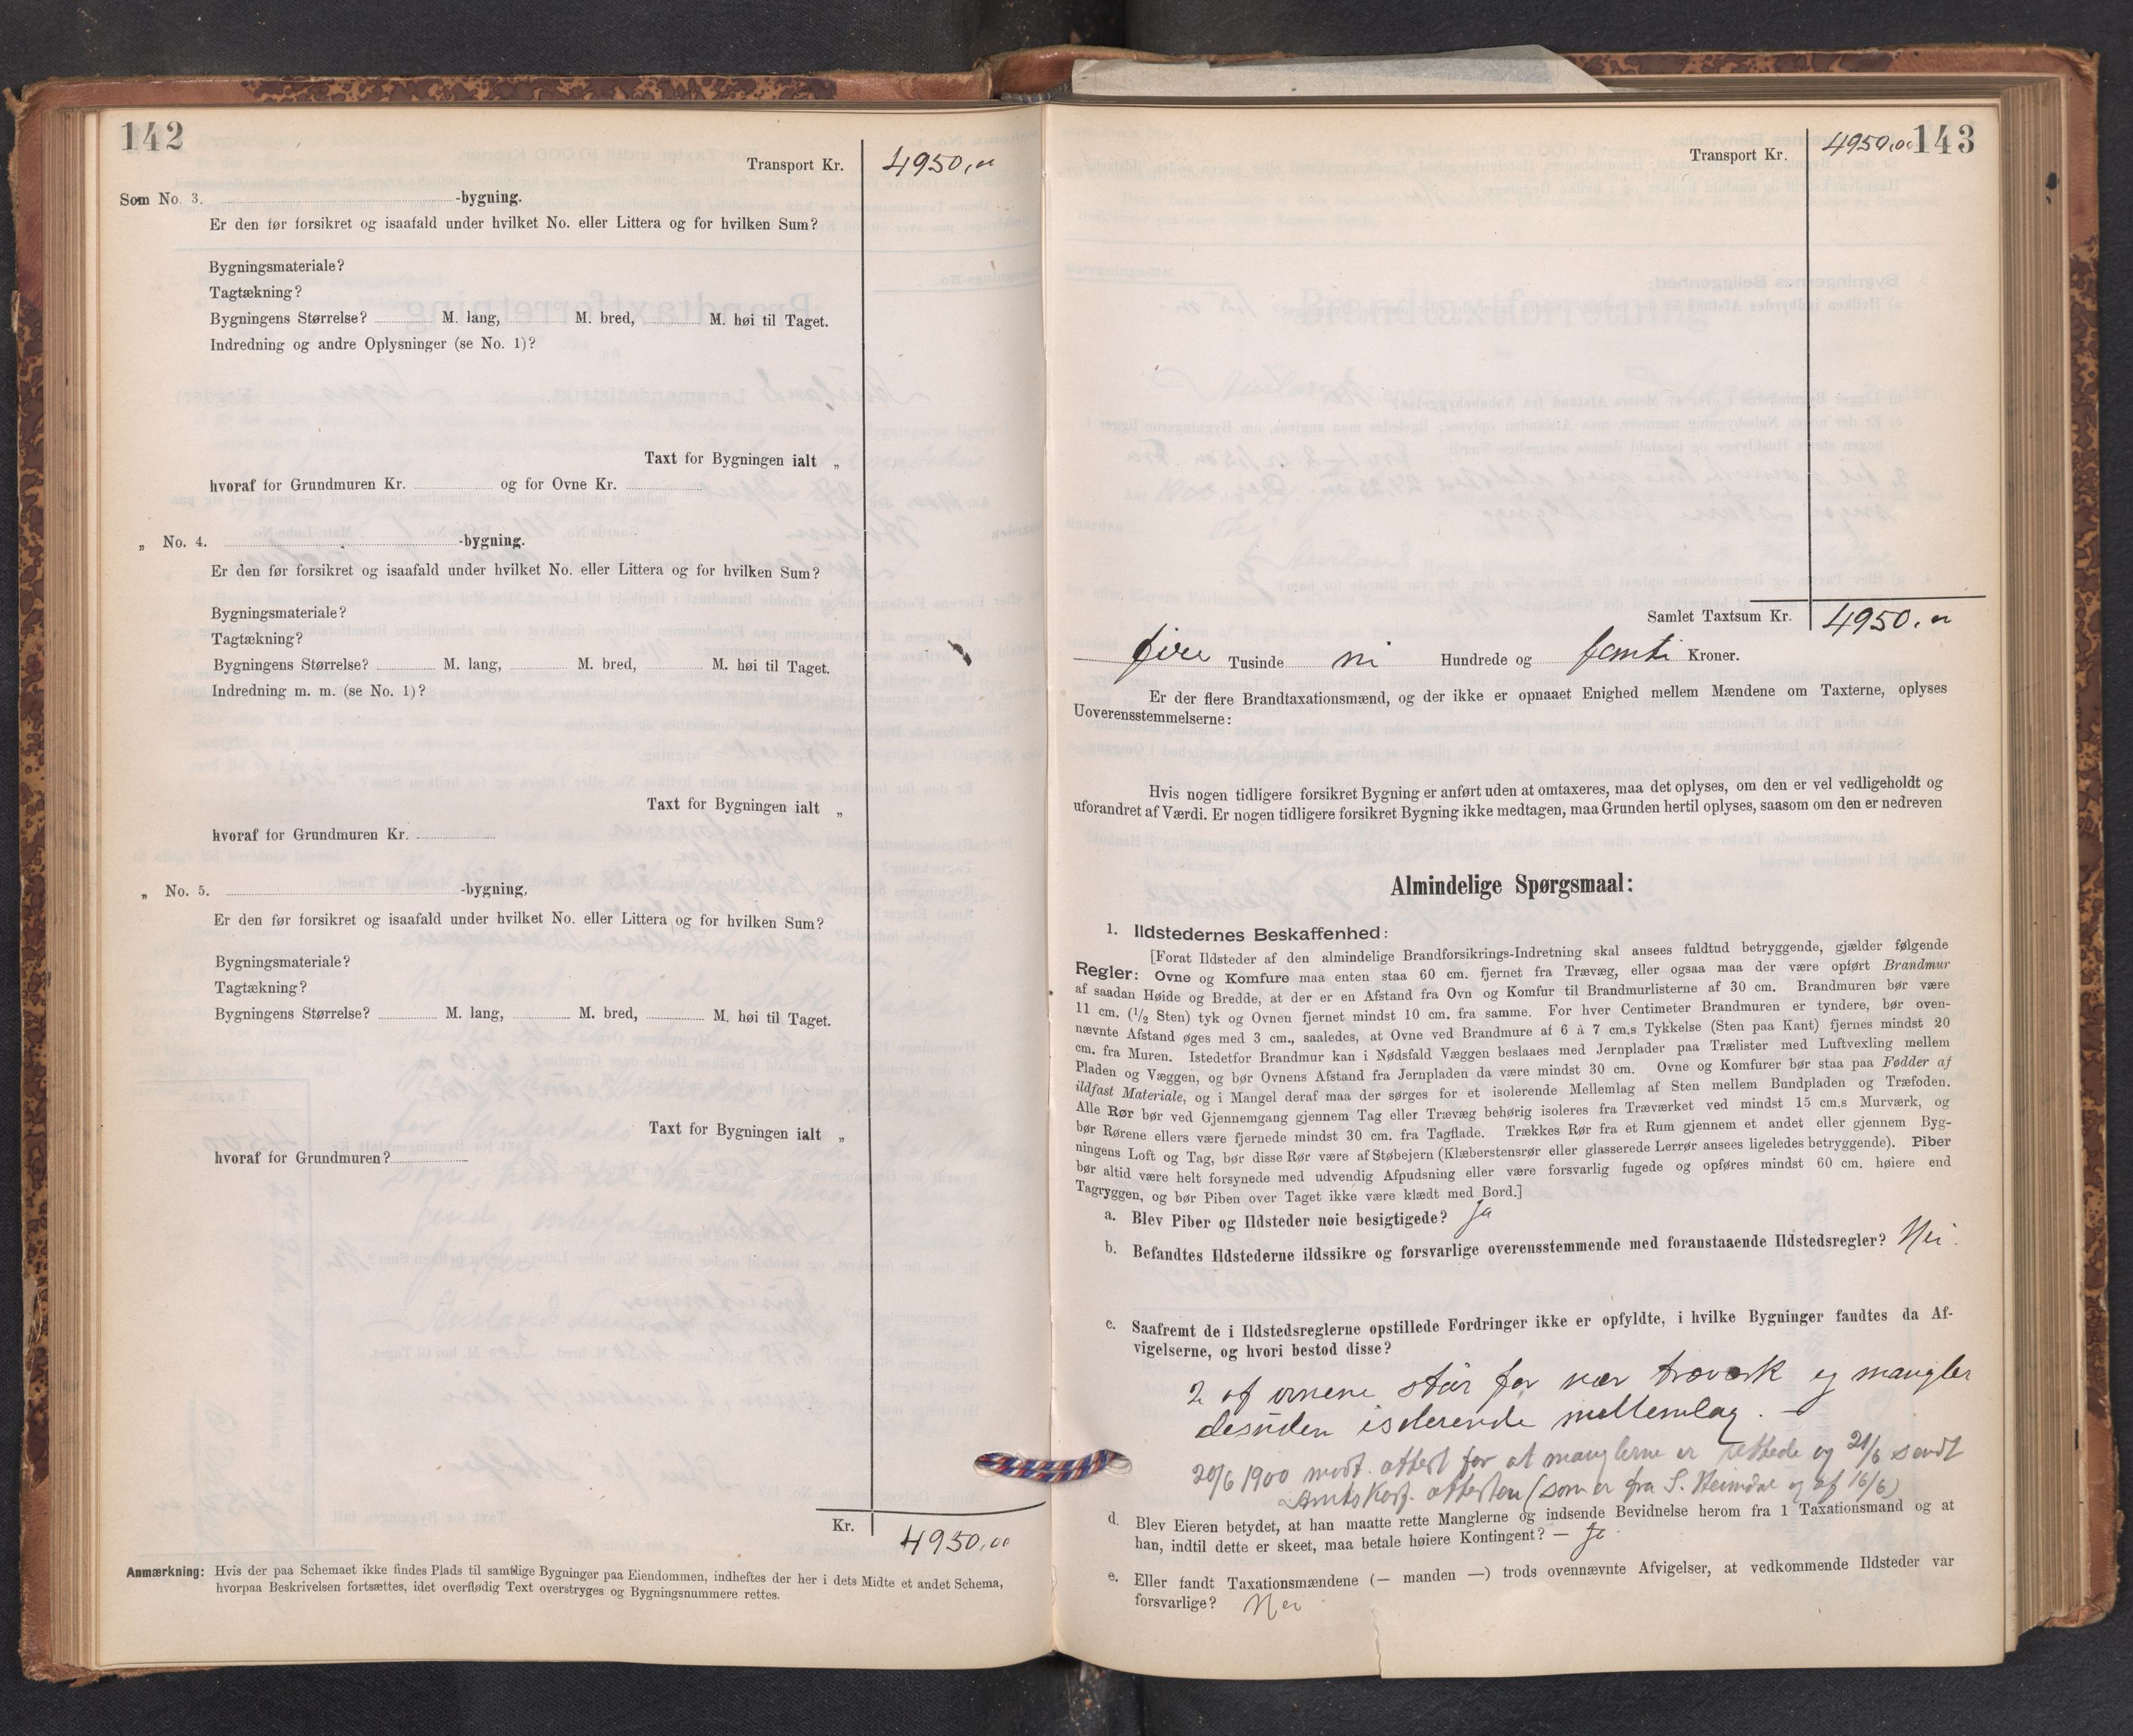 142
Transport Kr. 4950,00
Som No. 3. -bygning.
Er den før forsikret og isaafald under hvilket No. eller Littera og for hvilken Sum?
Bygningsmateriale?
Tagtækning?
Bygningens Størrelse? M. lang, M. bred, M. høi til Taget.
Indredning og andre Oplysninger (se No. 1)?
Taxt for Bygningen ialt „
hvoraf for Grundmuren Kr. og for Ovne Kr.
„ No. 4. -bygning.
Er den før forsikret og isaafald under hvilket No. eller Littera og for hvilken Sum?
Bygningsmateriale?
Tagtækning?
Bygningens Størrelse? M. lang, M. bred, M. høi til Taget.
Indredning m. m. (se No. 1)?
Taxt for Bygningen ialt „
hvoraf for Grundmuren Kr.
„ No. 5. -bygning.
Er den før forsikret og isaafald under hvilket No. eller Littera og for hvilken Sum?
Bygningsmateriale?
Tagtækning?
Bygningens Størrelse? M. lang, M. bred, M. høi til Taget.
Taxt for Bygningen ialt „
hvoraf for Grundmuren?
Kr. 4950,00
Anmærkning: Hvis der paa Schemaet ikke findes Plads til samtlige Bygninger paa Eiendommen, indheftes der her i dets Midte et andet Schema,
hvorpaa Beskrivelsen fortsættes, idet overflødig Text overstryges og Bygningsnummere rettes.
143
Transport Kr. 4950,00
Samlet Taxtsum Kr. 4950,00
fire Tusinde ni Hundrede og femti Kroner.
Er der flere Brandtaxationsmænd, og der ikke er opnaaet Enighed mellem Mændene om Taxterne, oplyses
Uoverensstemmelserne:
Hvis nogen tidligere forsikret Bygning er anført uden at omtaxeres, maa det oplyses, om den er vel vedligeholdt og
uforandret af Værdi. Er nogen tidligere forsikret Bygning ikke medtagen, maa Grunden hertil oplyses, saasom om den er nedreven
Almindelige Spørgsmaal:
1. Ildstedernes Beskaffenhed:
[Forat Ildsteder af den almindelige Brandforsikrings-Indretning skal ansees fuldtud betryggende, gjælder følgende
Regler: Ovne og Komfure maa enten staa 60 cm. fjernet fra Trævæg, eller ogsaa maa der være opført Brandmur
af saadan Høide og Bredde, at der er en Afstand fra Ovn og Komfur til Brandmurlisterne af 30 cm. Brandmuren bør være
11 cm. (1/2 Sten) tyk og Ovnen fjernet mindst 10 cm. fra samme. For hver Centimeter Brandmuren er tyndere, bør oven-
nævnte Afstand øges med 3 cm., saaledes, at Ovne ved Brandmure af 6 à 7 cm.s Tykkelse (Sten paa Kant) fjernes mindst 20
cm. fra Muren. Istedetfor Brandmur kan i Nødsfald Væggen beslaaes med Jernplader paa Trælister med Luftvexling mellem
Pladen og Væggen, og bør Ovnens Afstand fra Jernpladen da være mindst 30 cm. Ovne og Komfurer bør staa paa Fødder af
ildfast Materiale, og i Mangel deraf maa der sørges for et isolerende Mellemlag af Sten mellem Bundpladen og Træfoden.
Alle Rør bør ved Gjennemgang gjennem Tag eller Trævæg behørig isoleres fra Træværket ved mindst 15 cm.s Murværk, og
bør Rørene ellers være fjernede mindst 30 cm. fra Tagflade. Trækkes Rør fra et Rum gjennem et andet eller gjennem Byg-
ningens Loft og Tag, bør disse Rør være af Støbejern (Klæberstensrør eller glasserede Lerrør ansees ligeledes betryggende). Piber
bør altid være helt forsynede med udvendig Afpudsning eller være forsvarlig fugede og opføres mindst 60 cm. høiere end
Tagryggen, og bør Piben over Taget ikke være klædt med Bord.]
a. Blev Piber og Ildsteder nøie besigtigede? Ja
b. Befandtes Ildstederne ildssikre og forsvarlige overensstemmende med foranstaaende Ildstedsregler? Nei.
c. Saafremt de i Ildstedsreglerne opstillede Fordringer ikke er opfyldte, i hvilke Bygninger fandtes da Af-
vigelserne, og hvori bestod disse?
2 af ovnene står for nær træverk og mangler
desuden isolerende mellemlag. —
20/6 1900 modt. attest for at manglerne er rettede og 21/6 sendt
Amtskorf. attesten (som er fra S. Heimdal og af 16/6)
d. Blev Eieren betydet, at han maatte rette Manglerne og indsende Bevidnelse herom fra 1 Taxationsmand og at
han, indtil dette er skeet, maa betale høiere Kontingent? — Ja.
e. Eller fandt Taxationsmændene (— manden —) trods ovennævnte Afvigelser, at vedkommende Ildsteder var
forsvarlige? Nei